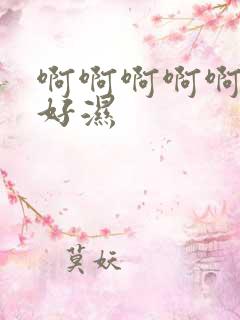 啊啊啊啊啊
好濕
莫妖